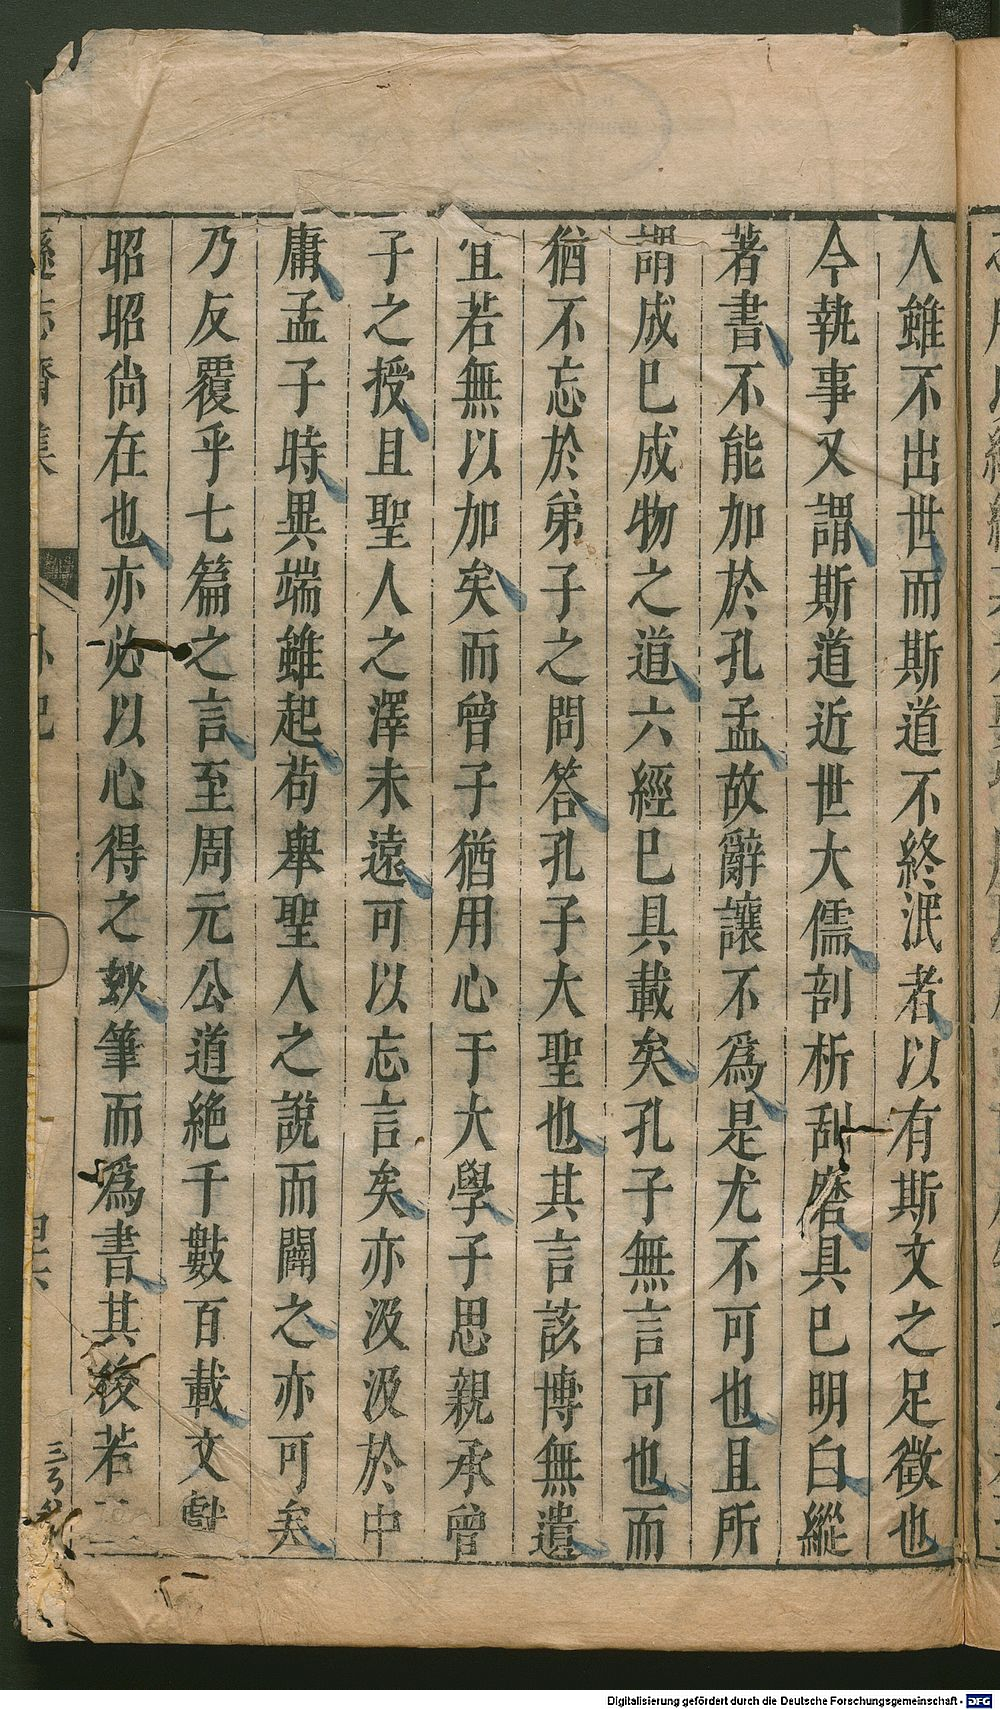 人雖不出世而斯道不終泯者以有斯文之足徵也
今執事又謂斯道近世大儒剖析刮磨具已明白縱
著書不能加於孔孟故辭讓不爲是尤不可也且所
謂成已成物之道六經已具載矣孔子無言可也而
猶不忘於弟子之問答孔子大聖也其言該博無遺
宜若無以加矣而曾子猶用心于大學子思親承曾
子之授且聖人之澤未遠可以忘言矣亦汲汲於中
庸孟子時異端雖起苟舉聖人之說而闢之亦可矣
乃反覆乎七篇之言至周元公道絕千數百載文獻
昭昭尚在也亦必以心得之玅筆而爲書其後若
Digitalisierung gefördert durch die Deutsche Forschungsgemeinschaft - DFG